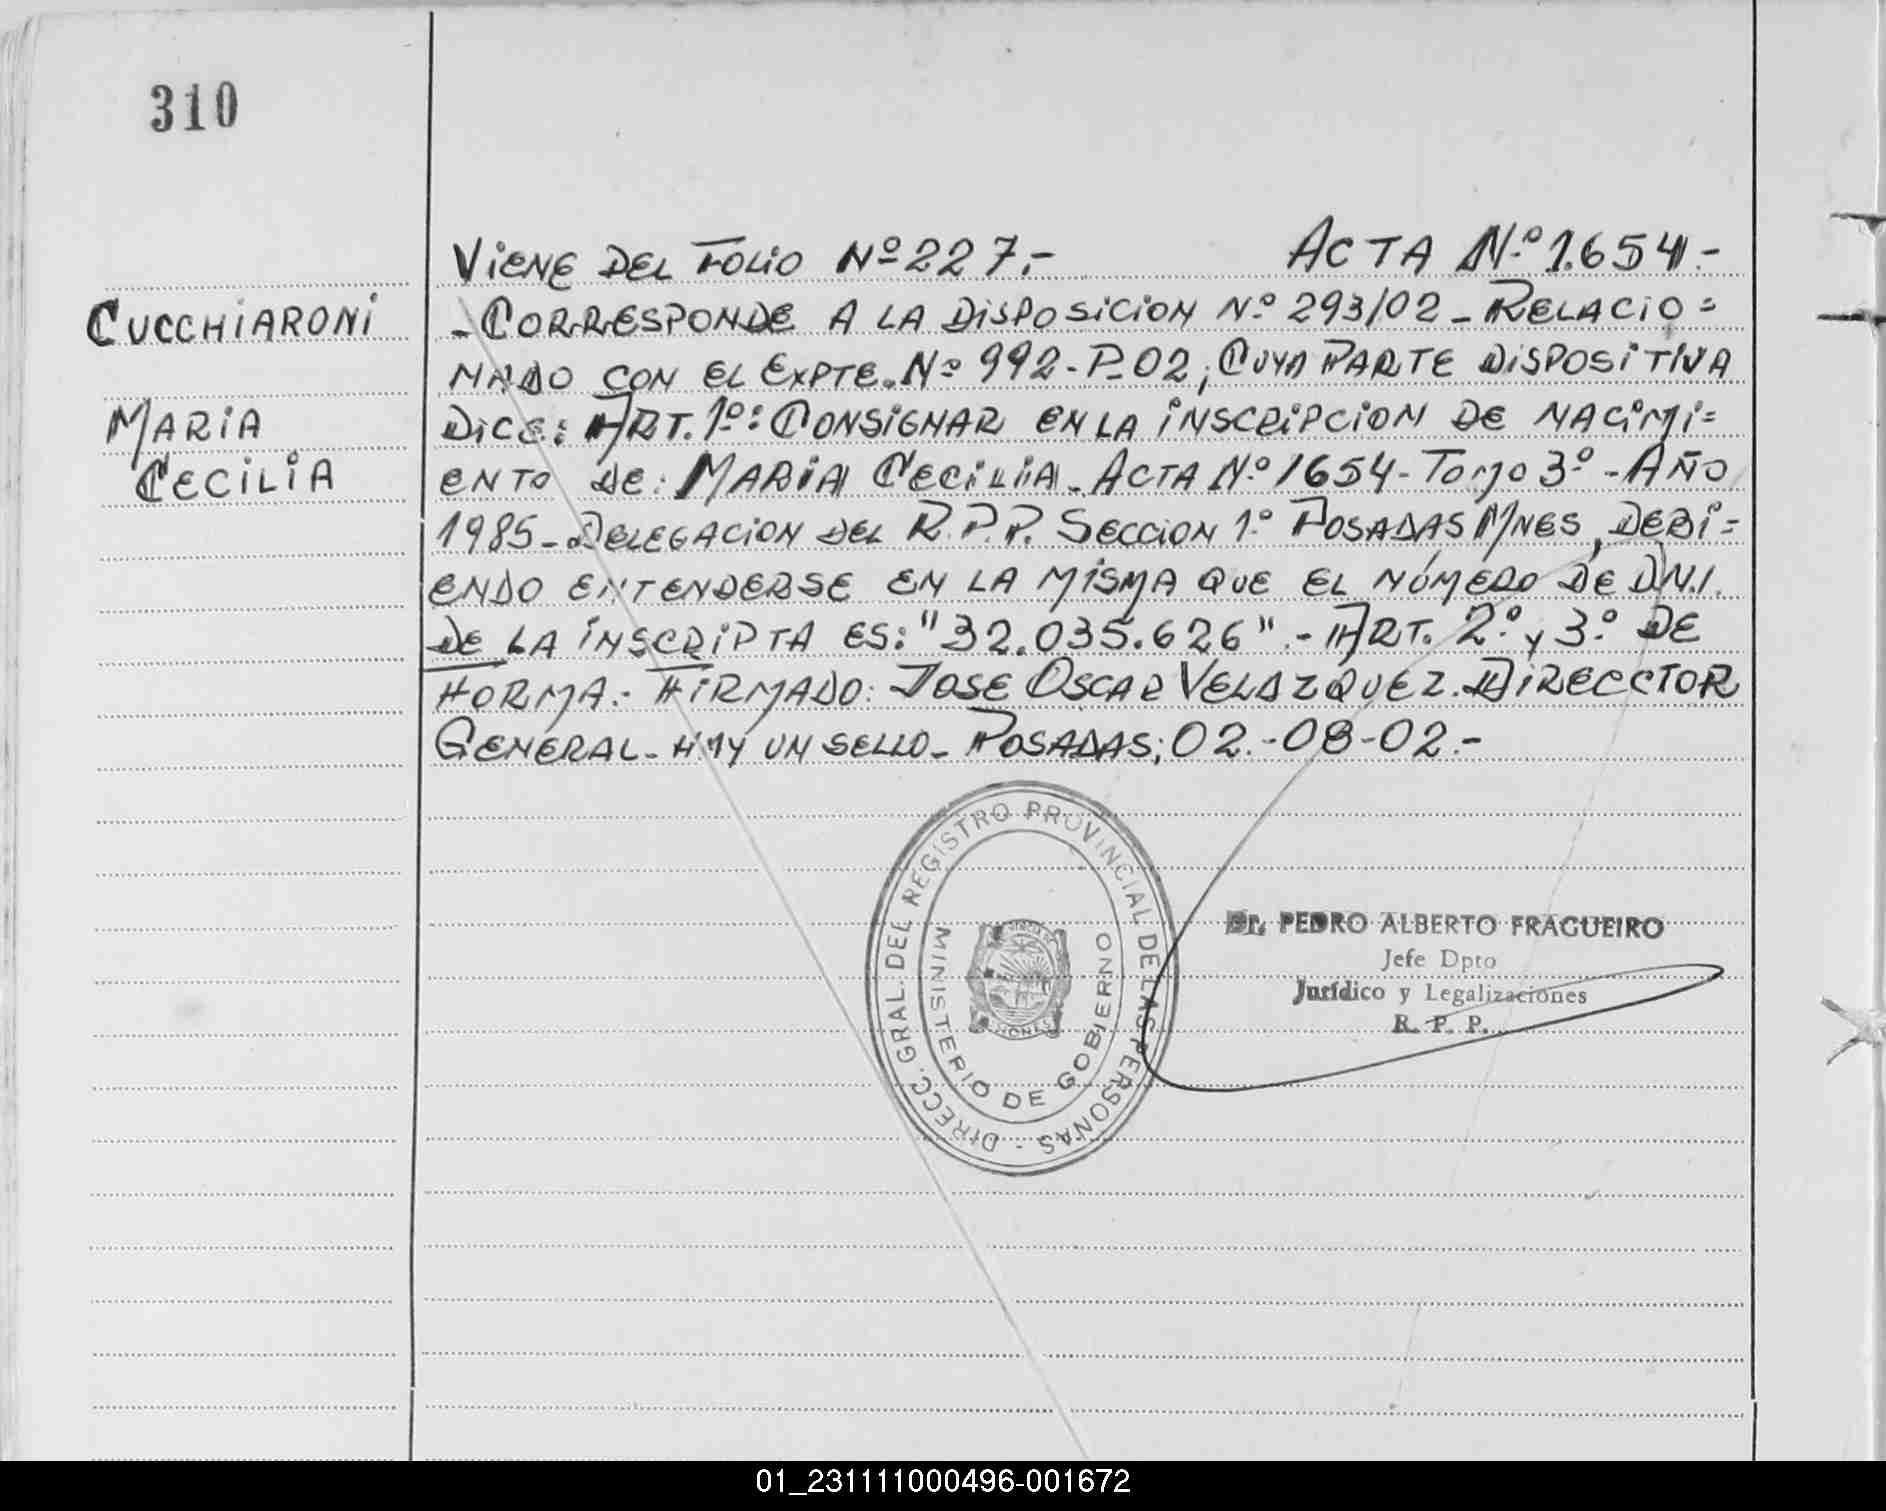 310
CUCCHIARONI
MARIA
CECILIA
VIENE DEL FOLIO Nº 227.- ACTA Nº 1.654.-
- CORRESPONDE A LA DISPOSICION Nº 293/02 - RELACIO=
NADO CON EL EXPTE. Nº 992-P-02, CUYA PARTE DISPOSITIVA
DICE: ART. 1º: CONSIGNAR EN LA INSCRIPCION DE NACIMI=
ENTO DE: MARIA CECILIA - ACTA Nº 1654 - TOMO 3º - AÑO
1985 - DELEGACION DEL R.P.P. SECCION 1º POSADAS MNES, DEBI=
ENDO ENTENDERSE EN LA MISMA QUE EL NÚMERO DE D.N.I.
DE LA INSCRIPTA ES: "32.035.626".- ART. 2º y 3º DE
FORMA.- FIRMADO: JOSE OSCAR VELAZQUEZ. DIRECCTOR
GENERAL - HAY UN SELLO - POSADAS; 02.-08-02.-
DIRECC. GRAL. DEL REGISTRO PROVINCIAL DE LAS PERSONAS -
MINISTERIO DE GOBIERNO
MISIONES
Dr. PEDRO ALBERTO FRAGUEIRO
Jefe Dpto
Jurídico y Legalizaciones
R. P. P.
01_231111000496-001672